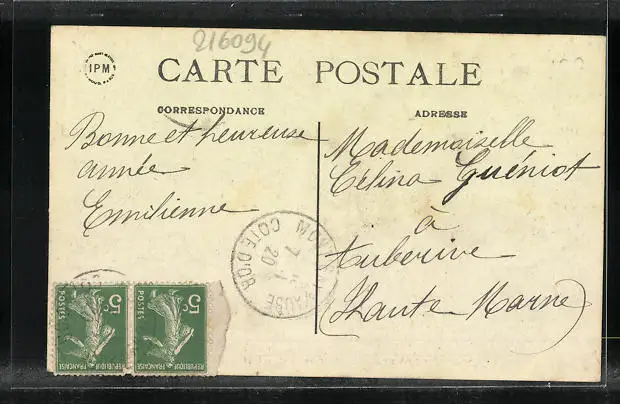 216094
IPM
CARTE POSTALE
CORRESPONDANCE
ADRESSE
Bonne et heureuse
année
Emilienne
Mademoiselle
Célina Guéniot
à
Auberive
(Haute Marne)
COTE D'OR
5c
POSTES
REPUBLIQUE FRANÇAISE
5c
POSTES
REPUBLIQUE FRANÇAISE